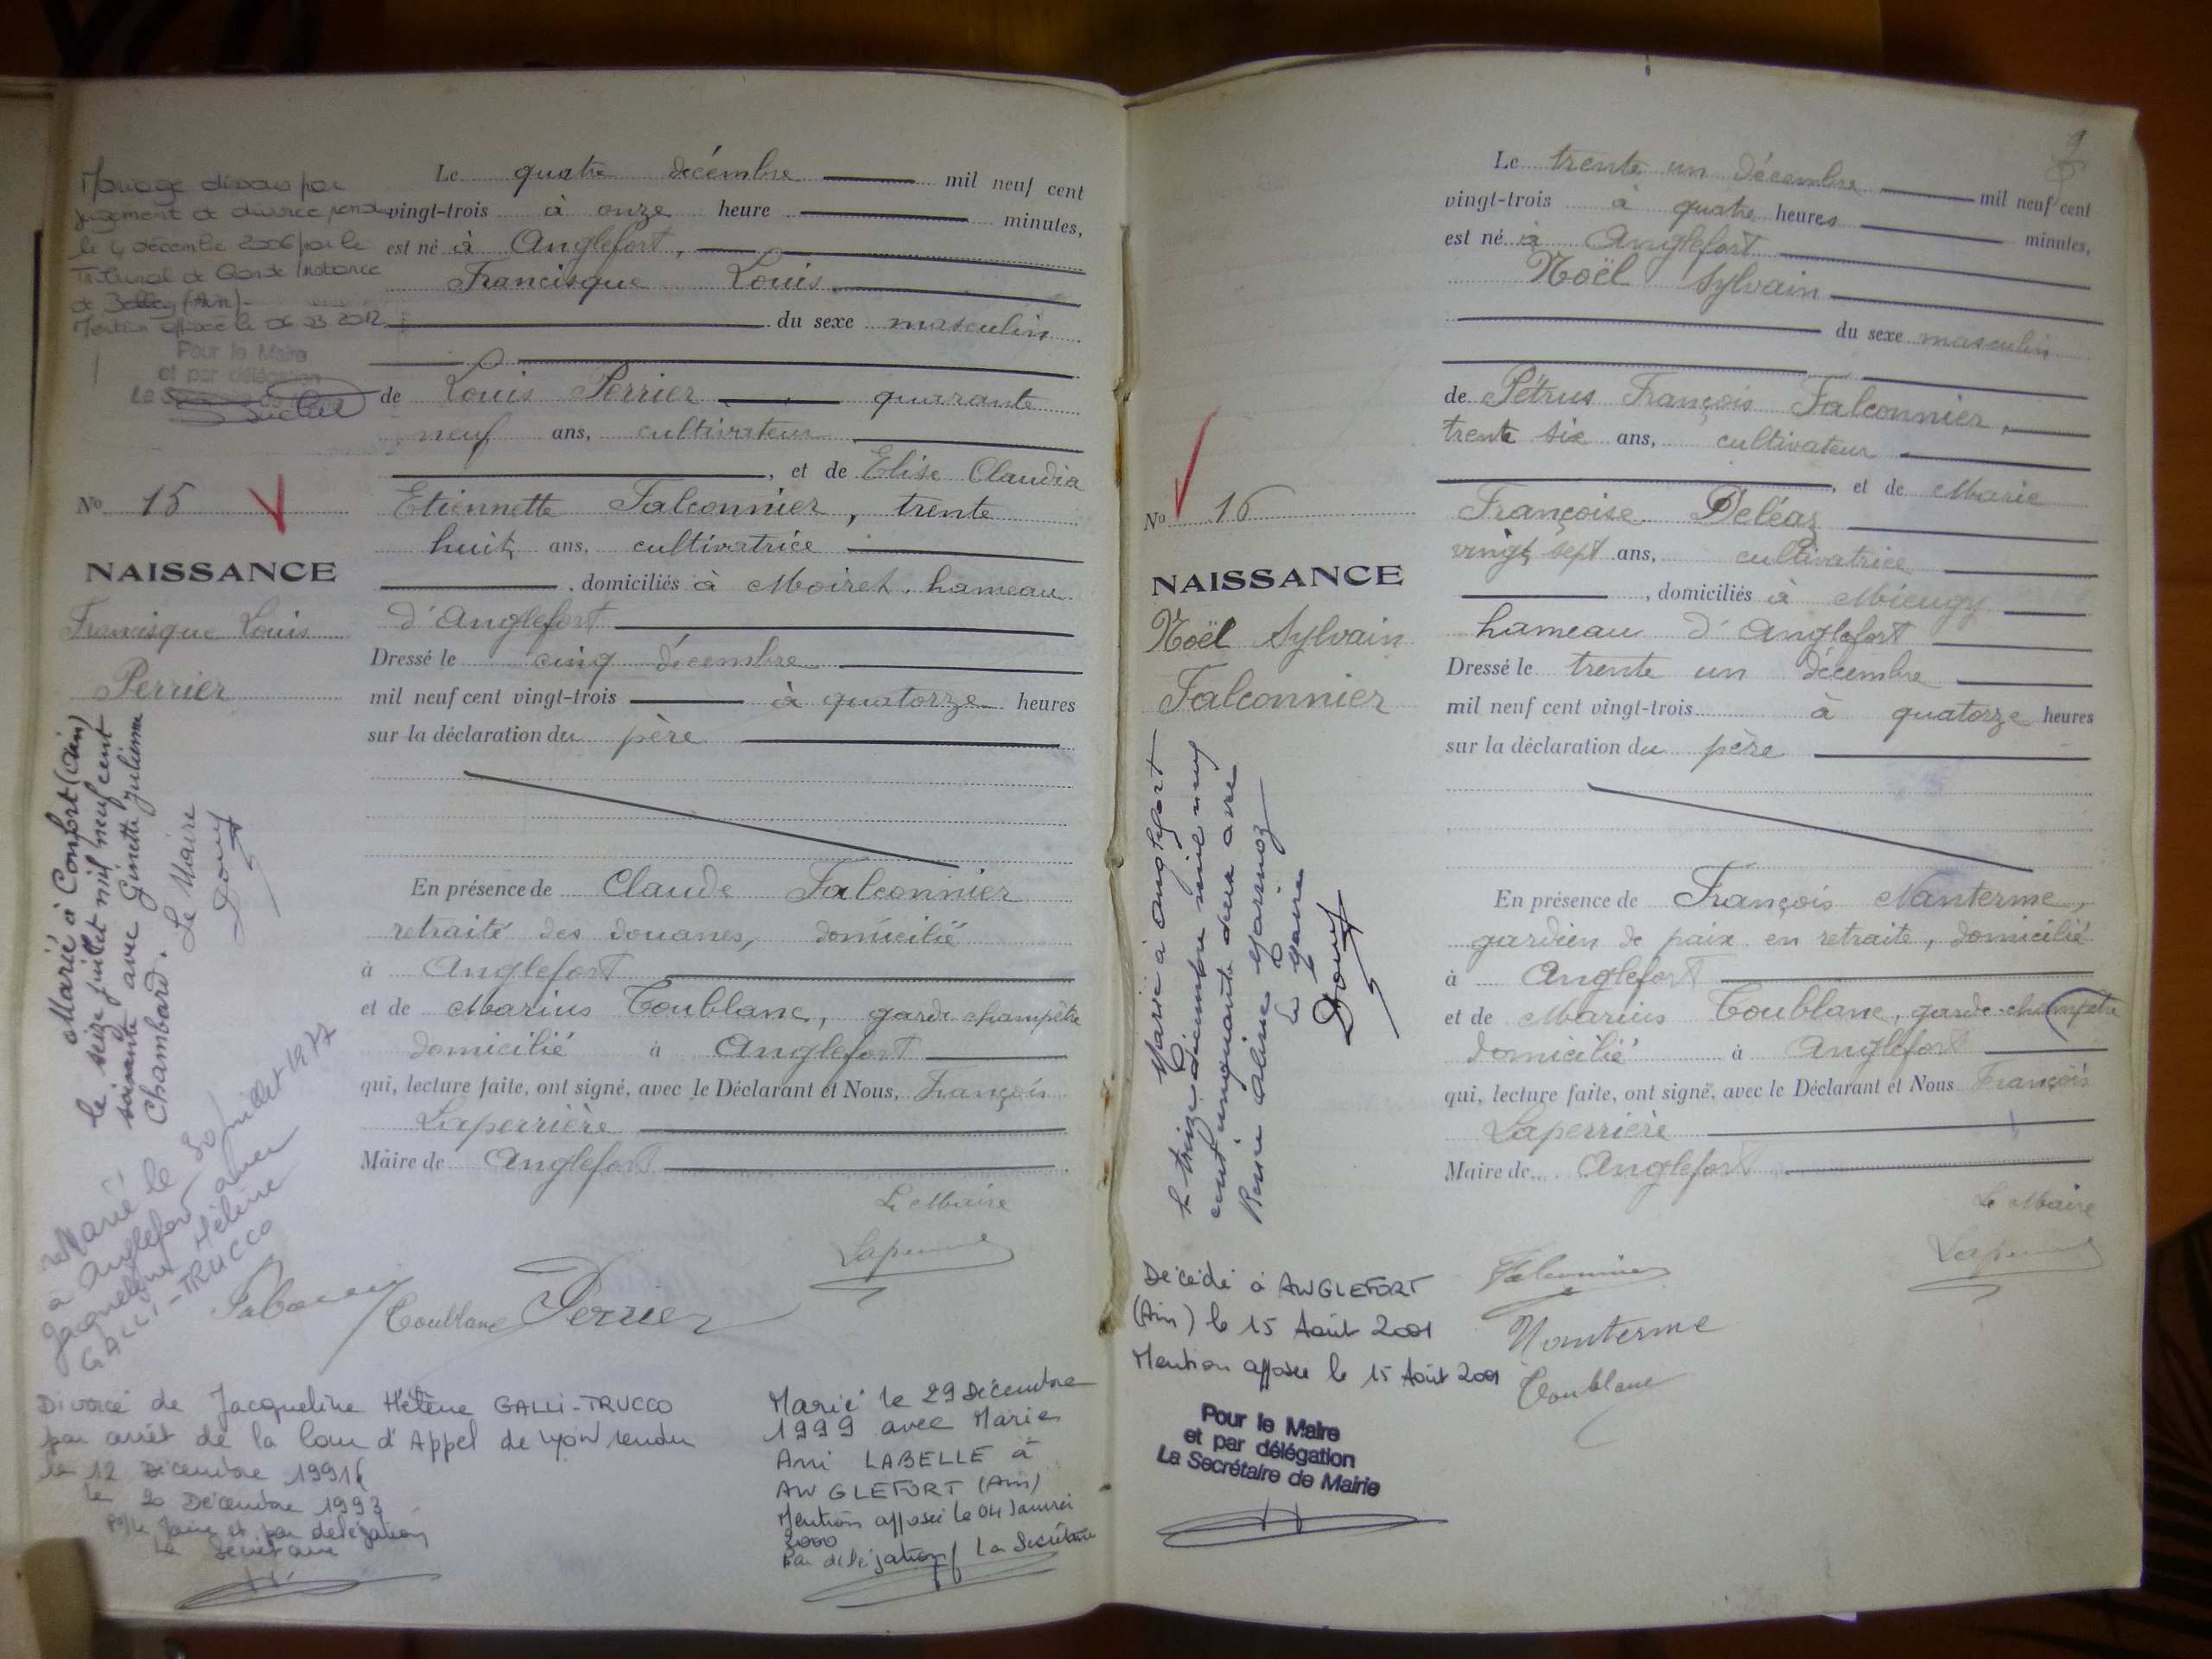 Mariage dissous par
jugement de divorce rendu
le 4 décembre 2006 par le
Tribunal de Grande Instance
de Belley (Ain) -
Mention apposée le 06.03.2012
Pour le Maire
et par délégation
No 15
NAISSANCE
Francisque Louis
Perrier
Marié à Confort (Ain)
le seize juillet mil neuf cent
soixante avec Ginette Julienne
Chambard. Le Maire
remarié le 30 juillet 1977
à Anglefort avec
Jacqueline Hélène
GALLI-TRUCCO
Le quatre décembre mil neuf cent
vingt-trois à onze heure minutes,
est né à Anglefort,
Francisque Louis
du sexe masculin
de Louis Perrier quarante
neuf ans, cultivateur
, et de Elise Claudia
Etiennette Falconnier, trente
huit ans, cultivatrice
, domiciliés à Moiret, hameau
d'Anglefort
Dressé le cinq décembre
mil neuf cent vingt-trois à quatorze heures
sur la déclaration du père
En présence de Claude Falconnier
retraité des douanes, domicilié
à Anglefort
et de Marius Toublanc, garde champêtre
domicilié à Anglefort
qui, lecture faite, ont signé, avec le Déclarant et Nous, François
Laperrière
Maire de Anglefort
Le Maire
Toublanc Perrier
Divorcé de Jacqueline Hélène GALLI-TRUCCO
par arrêt de la Cour d'Appel de Lyon rendu
le 12 Décembre 1991
le 20 Décembre 1993
Marié le 29 Décembre
1999 avec Marie
Ani LABELLE à
ANGLEFORT (Ain)
Mention apposée le 04 Janvier
2000
Par délégation La Secrétaire
9
No 16
NAISSANCE
Noël Sylvain
Falconnier
Marié à Anglefort
le treize décembre mil neuf
cent cinquante deux avec
Le Maire
Décédé à ANGLEFORT
(Ain) le 15 Août 2001
Mention apposée le 15 Août 2001
Pour le Maire
et par délégation
La Secrétaire de Mairie
Le trente un décembre mil neuf cent
vingt-trois à quatre heures minutes,
est né à Anglefort
Noël Sylvain
du sexe masculin
de Pétrus François Falconnier,
trente six ans, cultivateur
, et de Marie
Françoise Deléaz
vingt sept ans, cultivatrice
, domiciliés à Mieugy
hameau d'Anglefort
Dressé le trente un décembre
mil neuf cent vingt-trois à quatorze heures
sur la déclaration du père
En présence de François Nanterme,
gardien de paix en retraite, domicilié
à Anglefort
et de Marius Toublanc, garde-champêtre
domicilié à Anglefort
qui, lecture faite, ont signé, avec le Déclarant et Nous François
Laperrière
Maire de Anglefort
Le Maire
Falconnier
Nanterme
Toublanc